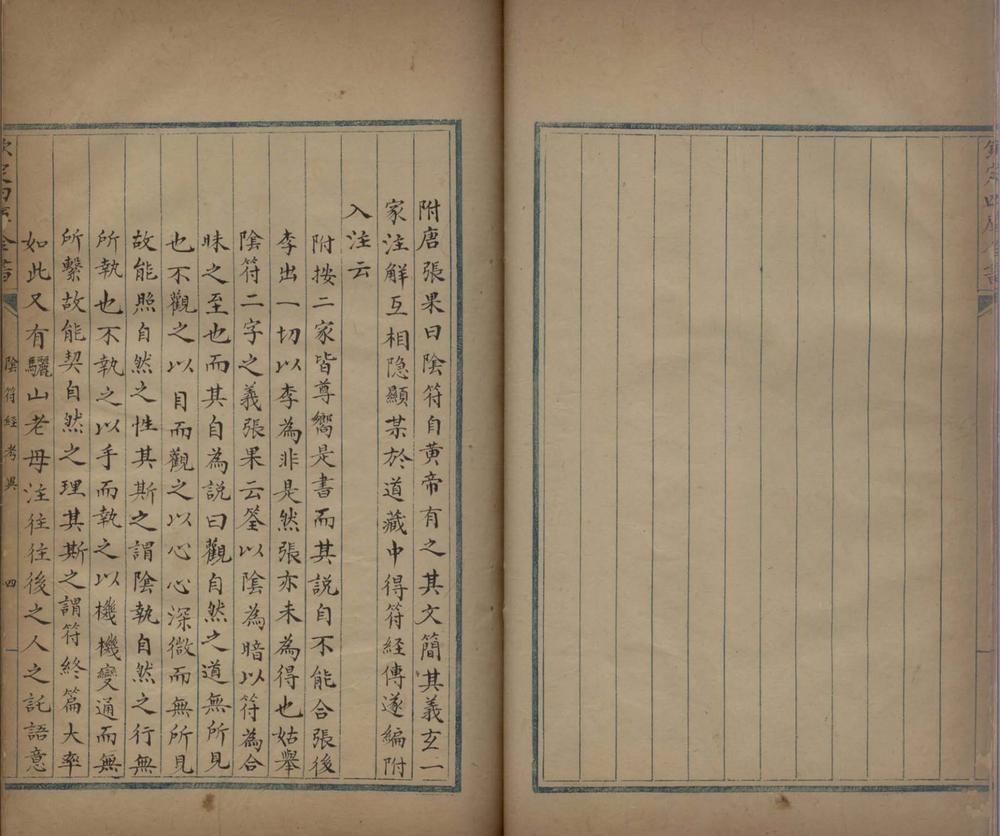 欽定四庫全書
附唐張果曰陰符自黃帝有之其文簡其義玄一
家注解互相隐顯某於道藏中得符經傳遂編附
入注云
附按二家皆尊嚮是書而其說自不能合張後
李出一切以李為非是然張亦未為得也姑舉
陰符二字之義張果云筌以陰為暗以符為合
昧之至也而其自為說曰觀自然之道無所見
也不觀之以目而觀之以心心深微而無所見
故能照自然之性其斯之謂陰執自然之行無
所執也不執之以手而執之以機機變通而無
所繫故能契自然之理其斯之謂符終篇大率
如此又有驪山老母注往往後之人之託語意
欽定四庫全書
陰符經考異
四